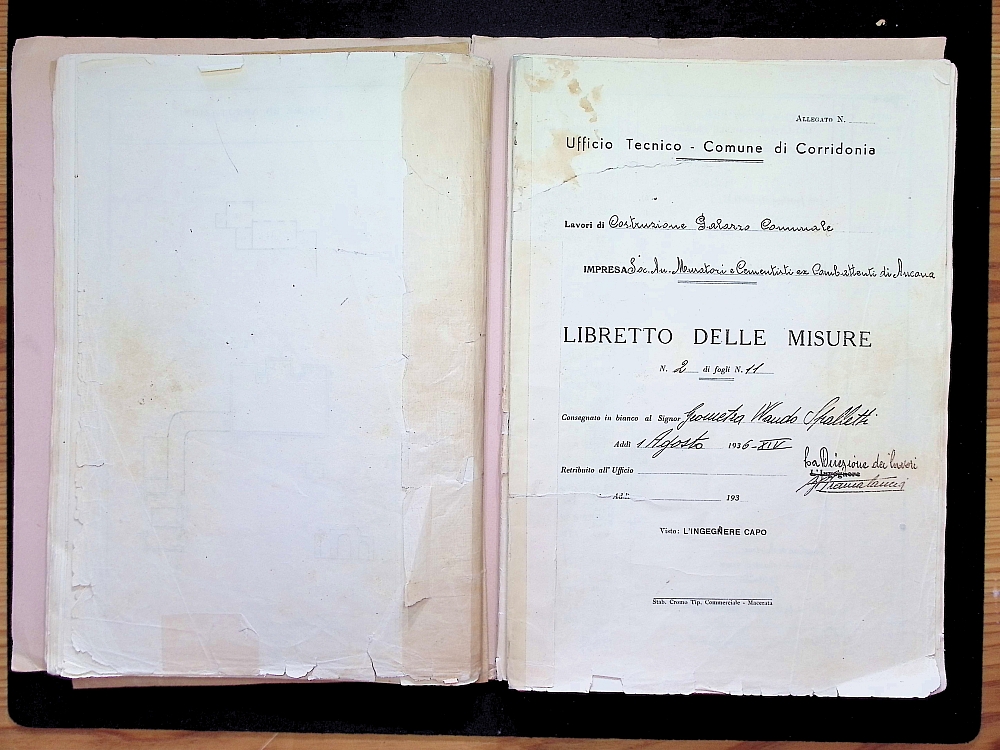 Allegato N.
Ufficio Tecnico - Comune di Corridonia
Lavori di Costruzione Palazzo Comunale
IMPRESA Soc. An. Muratori e Cementisti ex Combattenti di Ancona
LIBRETTO DELLE MISURE
N. 2 di fogli N. 11
Consegnato in bianco al Signor Geometra Wando Spalletti
Addì 1 Agosto 1936-XIV
La Direzione dei lavori
L'Ingegnere
Retribuito all' Ufficio
Addì 193
Visto: L'INGEGNERE CAPO
Stab. Cromo Tip. Commerciale - Macerata